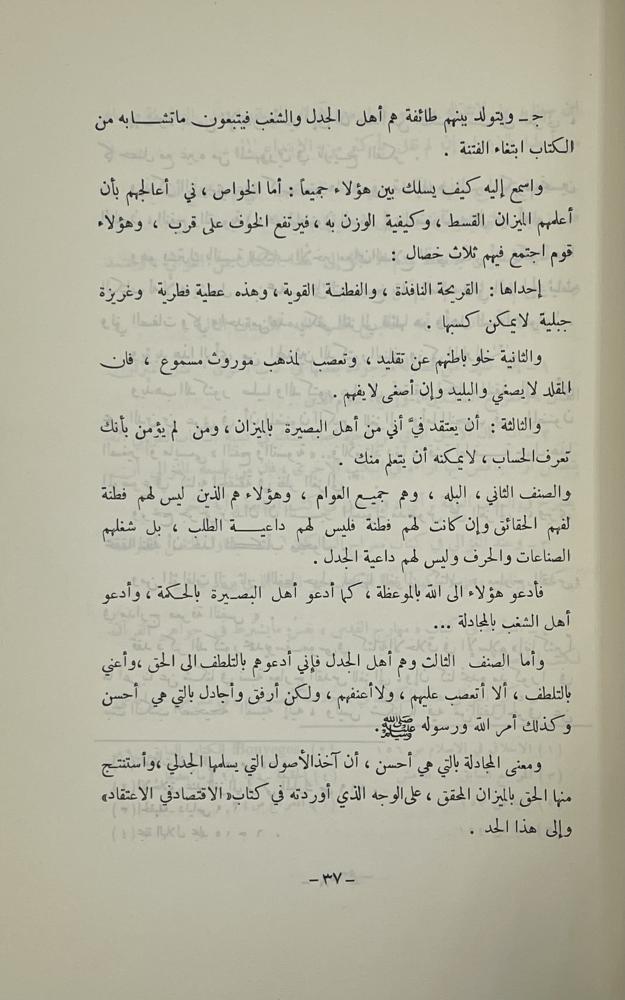 جـ ـ ويتولد بينهم طائفة هم أهل الجدل والشغب فيتبعون ماتشـــابه من
الكتاب ابتغاء الفتنة .
واسمع إليه كيف يسلك بين هؤلاء جميعاً : أما الخواص ، ني أعالجهم بأن
أعلمهم الميزان القسط ، وكيفية الوزن به ، فيرتفع الخوف على قرب ، وهؤلاء
قوم اجتمع فيهم ثلاث خصال :
إحداها : القريحة النافذة ، والفطنـة القوية ، وهذه عطية فطرية وغريزة
جبلية لايمكن كسبها .
والثانية خلو باطنهم عن تقليد ، وتعصب لمذهب موروث مسموع ، فان
المقلد لايصغي والبليد وإن أصغى لايفهم .
والثالثة : أن يعتقد فيَّ أني من أهل البصيرة بالميزان ، ومن لم يؤمن بأنك
تعرف الحساب ، لايمكنه أن يتعلم منك .
والصنف الثاني ، البله ، وهم جميـع العوام ، وهؤلاء هم الذين ليس لهم فطنة
لفهم الحقائق وإن كانت لهم فطنة فليس لهم داعيـــة الطلب ، بل شغلهم
الصناعات والحرف وليس لهم داعية الجدل .
فأدعو هؤلاء الى الله بالموعظة ، كما أدعو أهل البصـيرة بالحكمة ، وأدعو
أهل الشغب بالمجادلة ...
وأما الصنف الثالث وهم أهل الجدل فإني أدعوهم بالتلطف الى الحق ،وأعني
بالتلطف ، ألا أتعصب عليهم ، ولاأعنفهم ، ولكن أرفق وأجادل بالتي هي أحسن
وكذلك أمر الله ورسوله ﷺ.
ومعنى المجادلة بالتي هي أحسن ، أن آخذالأصول التي يسلمها الجدلي ،وأستنتـج
منها الحق بالميزان المحقق ، على الوجه الذي أوردته في كتاب« الاقتصادفي الاعتقاد»
وإلى هذا الحد .
ـ ٣٧ ـ